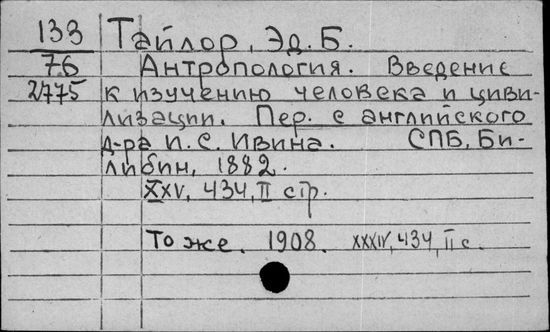 133 Тайлор, Эд. Б.
76 Антропология. Введение
2775 к изучению человека и циви-
лизации. Пер. с английского
д-ра И. С. Ивина. СПБ, Би-
либин, 1882.
XXV, 434, II стр.
То же. 1908. XXXIV, 434, II с.